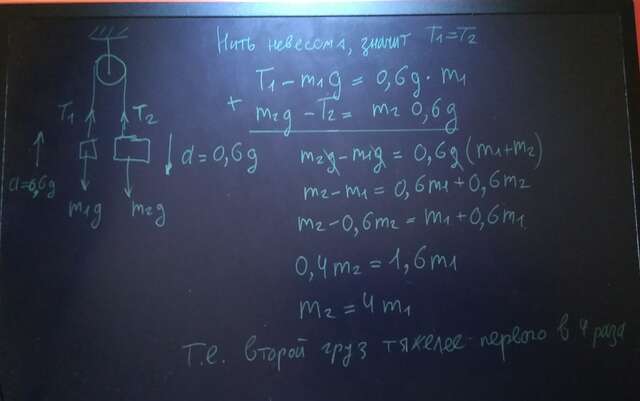 Нить невесома, значит T₁=T₂
T₁-m₁g = 0,6g·m₁
+
m₂g-T₂= m₂ 0,6g
T₁ T₂
a=0,6g
a=0,6g
m₁g m₂g
m₂g-m₁g = 0,6g(m₁+m₂)
m₂-m₁=0,6m₁+0,6m₂
m₂-0,6m₂=m₁+0,6m₁
0,4m₂=1,6m₁
m₂=4m₁
Т.е. второй груз тяжелее первого в 4 раза